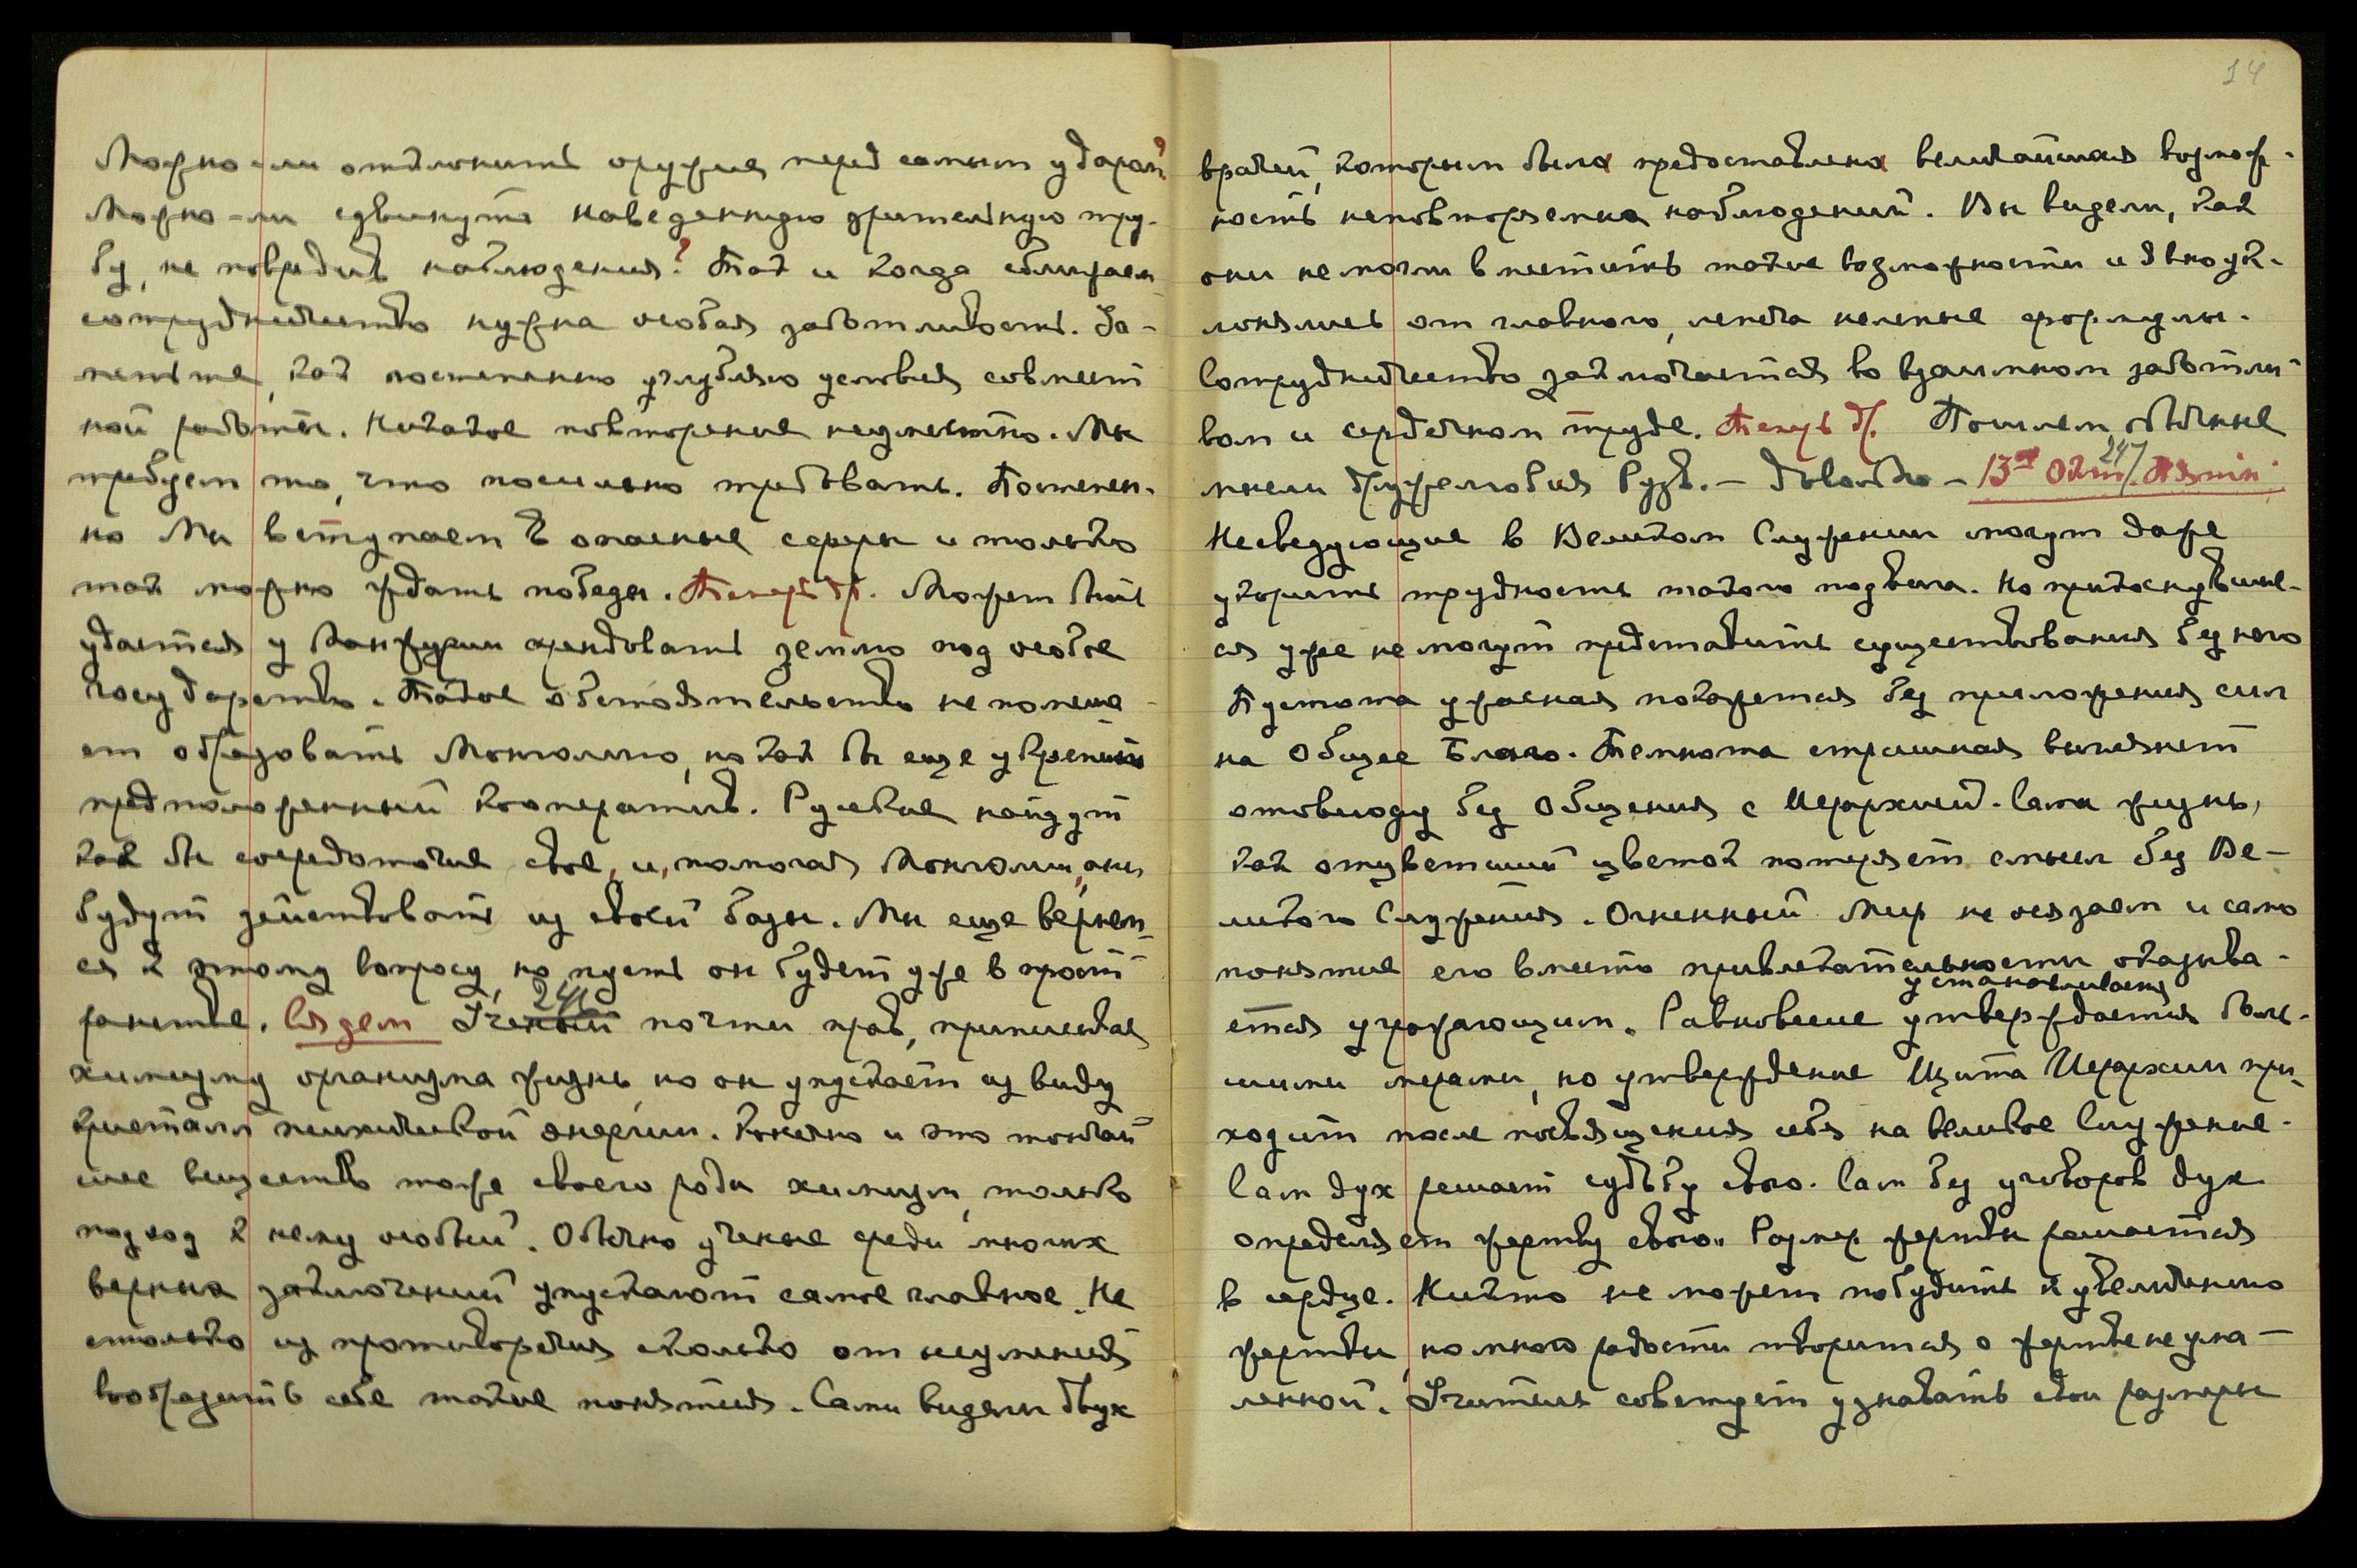 Можно-ли отклонить оружие перед самым ударом?
Можно-ли сдвинуть наведенную зрительную тру-
бу, не повредив наблюдения? Так и когда сближаем
сотрудничество нужна особая заботливость. За-
метьте, как постепенно углубляю условия совмест
ной работы. Никакое повторение неуместно. Мы
требуем то, что посильно требовать. Постепен-
но Мы вступаем в опасные сферы и только
так можно ждать победы. Теперь др. Может быть
удастся у Манжурии арендовать землю под особое
государство. Такое обстоятельство не помеша-
ет образовать Монголию, но как бы еще укрепить
предположенный кооператив. Русские найдут
как бы средоточие свое, и, помогая Монголии, они
будут действовать из своей базы. Мы еще вернем-
ся к этому вопросу, но пусть он будет уже в прост-
ранстве. Сядем
246
Ученый почти прав, приписывая
химизму организма жизнь, но он упускает из виду
кристалл психической энергии. Конечно и это тончай
шее вещество тоже своего рода химизм, только
подход к нему особый. Обычно ученые среди многих
верных заключений упускают самое главное. Не
столько из противоречия сколько от неумения
вообразить себе такие понятия. Сами видели двух
14
врачей, которым была предоставлена величайшая возмож-
ность неповторяемых наблюдений. Вы видели, как
они не могли вместить такие возможности и явно ук-
лонялись от главного, лепеча нелепые формулы.
Сотрудничество заключается во взаимном заботли-
вом и сердечном труде. Теперь др. Пошлем обычные
мысли дружелюбия Рузв. – Довольно – 13го Окт. Пятн.
247
Несведующие в Великом Служении могут даже
укорить трудность такого подвига. Но прикоснувшие-
ся уже не могут представить существования без него
Пустота ужасная покажется без приложения сил
на Общее Благо. Темнота страшная выглянет
отовсюду без Общения с Иерархией. Сама жизнь,
как отцветший цветок потеряет смысл без Ве-
ликого Служения. Огненный Мир не осязаем и само
понятие его вместо привлекательности оказыва-
ется угрожающим.
устанавливается
Равновесие утверждается боль-
шими мерами, но утверждение Щита Иерархии при-
ходит после посвящения себя на великое Служение.
Сам дух решает судьбу свою. Сам без уговоров дух
определяет жертву свою. Размер жертвы решается
в сердце. Никто не может побудить к увеличению
жертвы, но много радости творится о жертве неума-
ленной. Учитель советует узнавать свои размеры